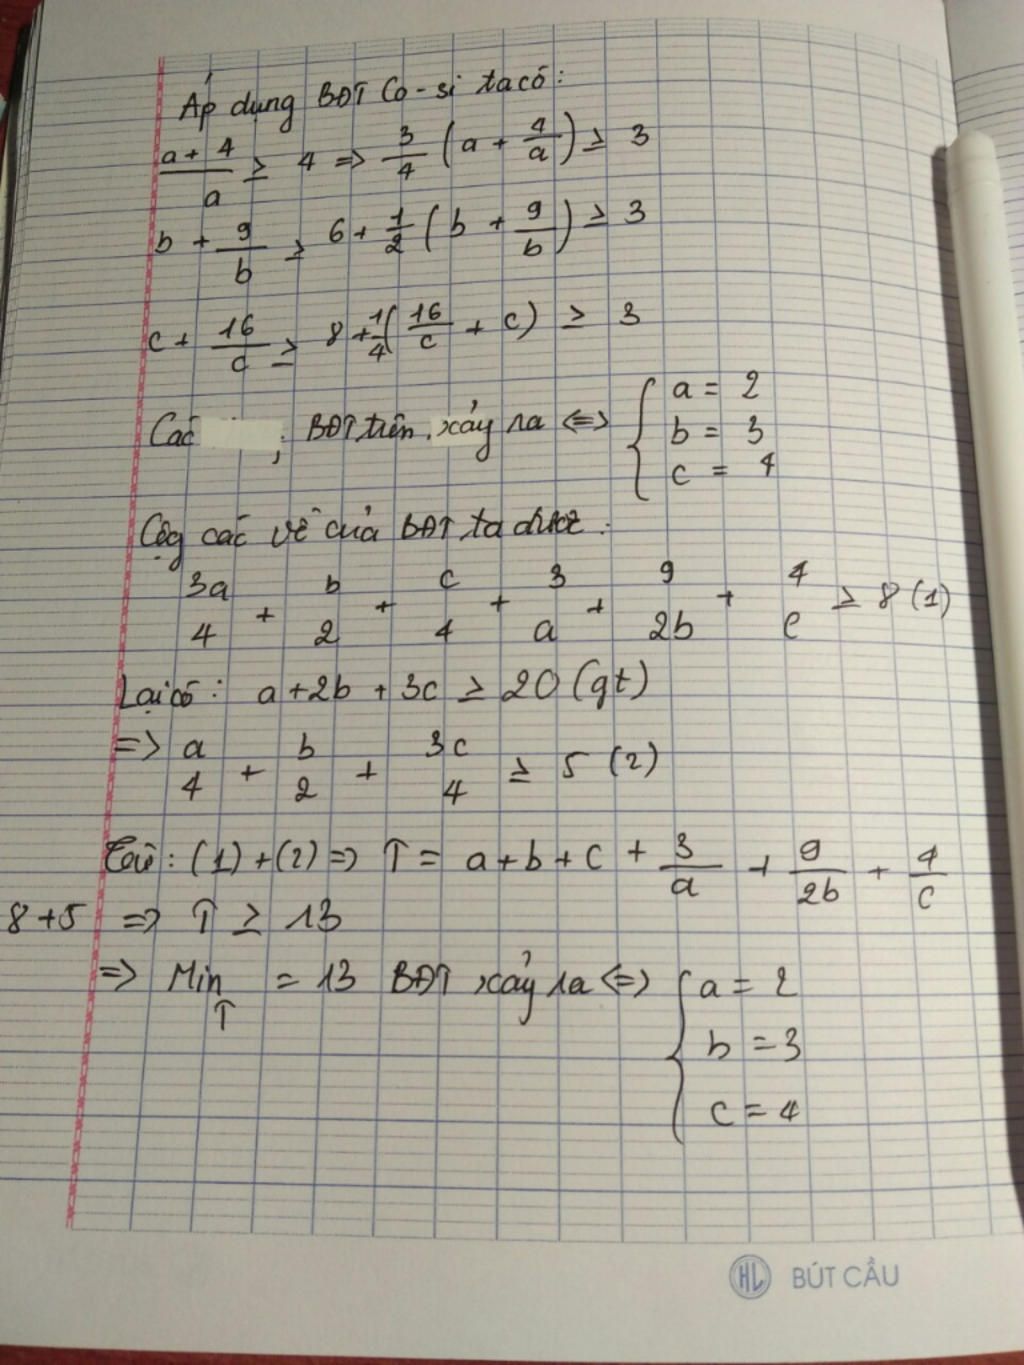 Áp dụng BĐT Cô-si ta có:
a + 4/a ≥ 4 => 3/4 (a + 4/a) ≥ 3
b + 9/b ≥ 6 + 1/2 (b + 9/b) ≥ 3
c + 16/c ≥ 8 + 1/4 (16/c + c) ≥ 3
Các ; BĐT trên xảy ra <=> { a = 2
b = 3
c = 4
Cộg các vế của BĐT ta được:
3a/4 + b/2 + c/4 + 3/a + 9/2b + 4/c ≥ 8 (1)
Lại có: a + 2b + 3c ≥ 20 (gt)
=> a/4 + b/2 + 3c/4 ≥ 5 (2)
(1) + (2) => T = a + b + c + 3/a + 9/2b + 4/c
8 + 5 => T ≥ 13
=> Min T = 13 BĐT xảy ra <=> { a = 2
b = 3
c = 4
HL BÚT CẦU